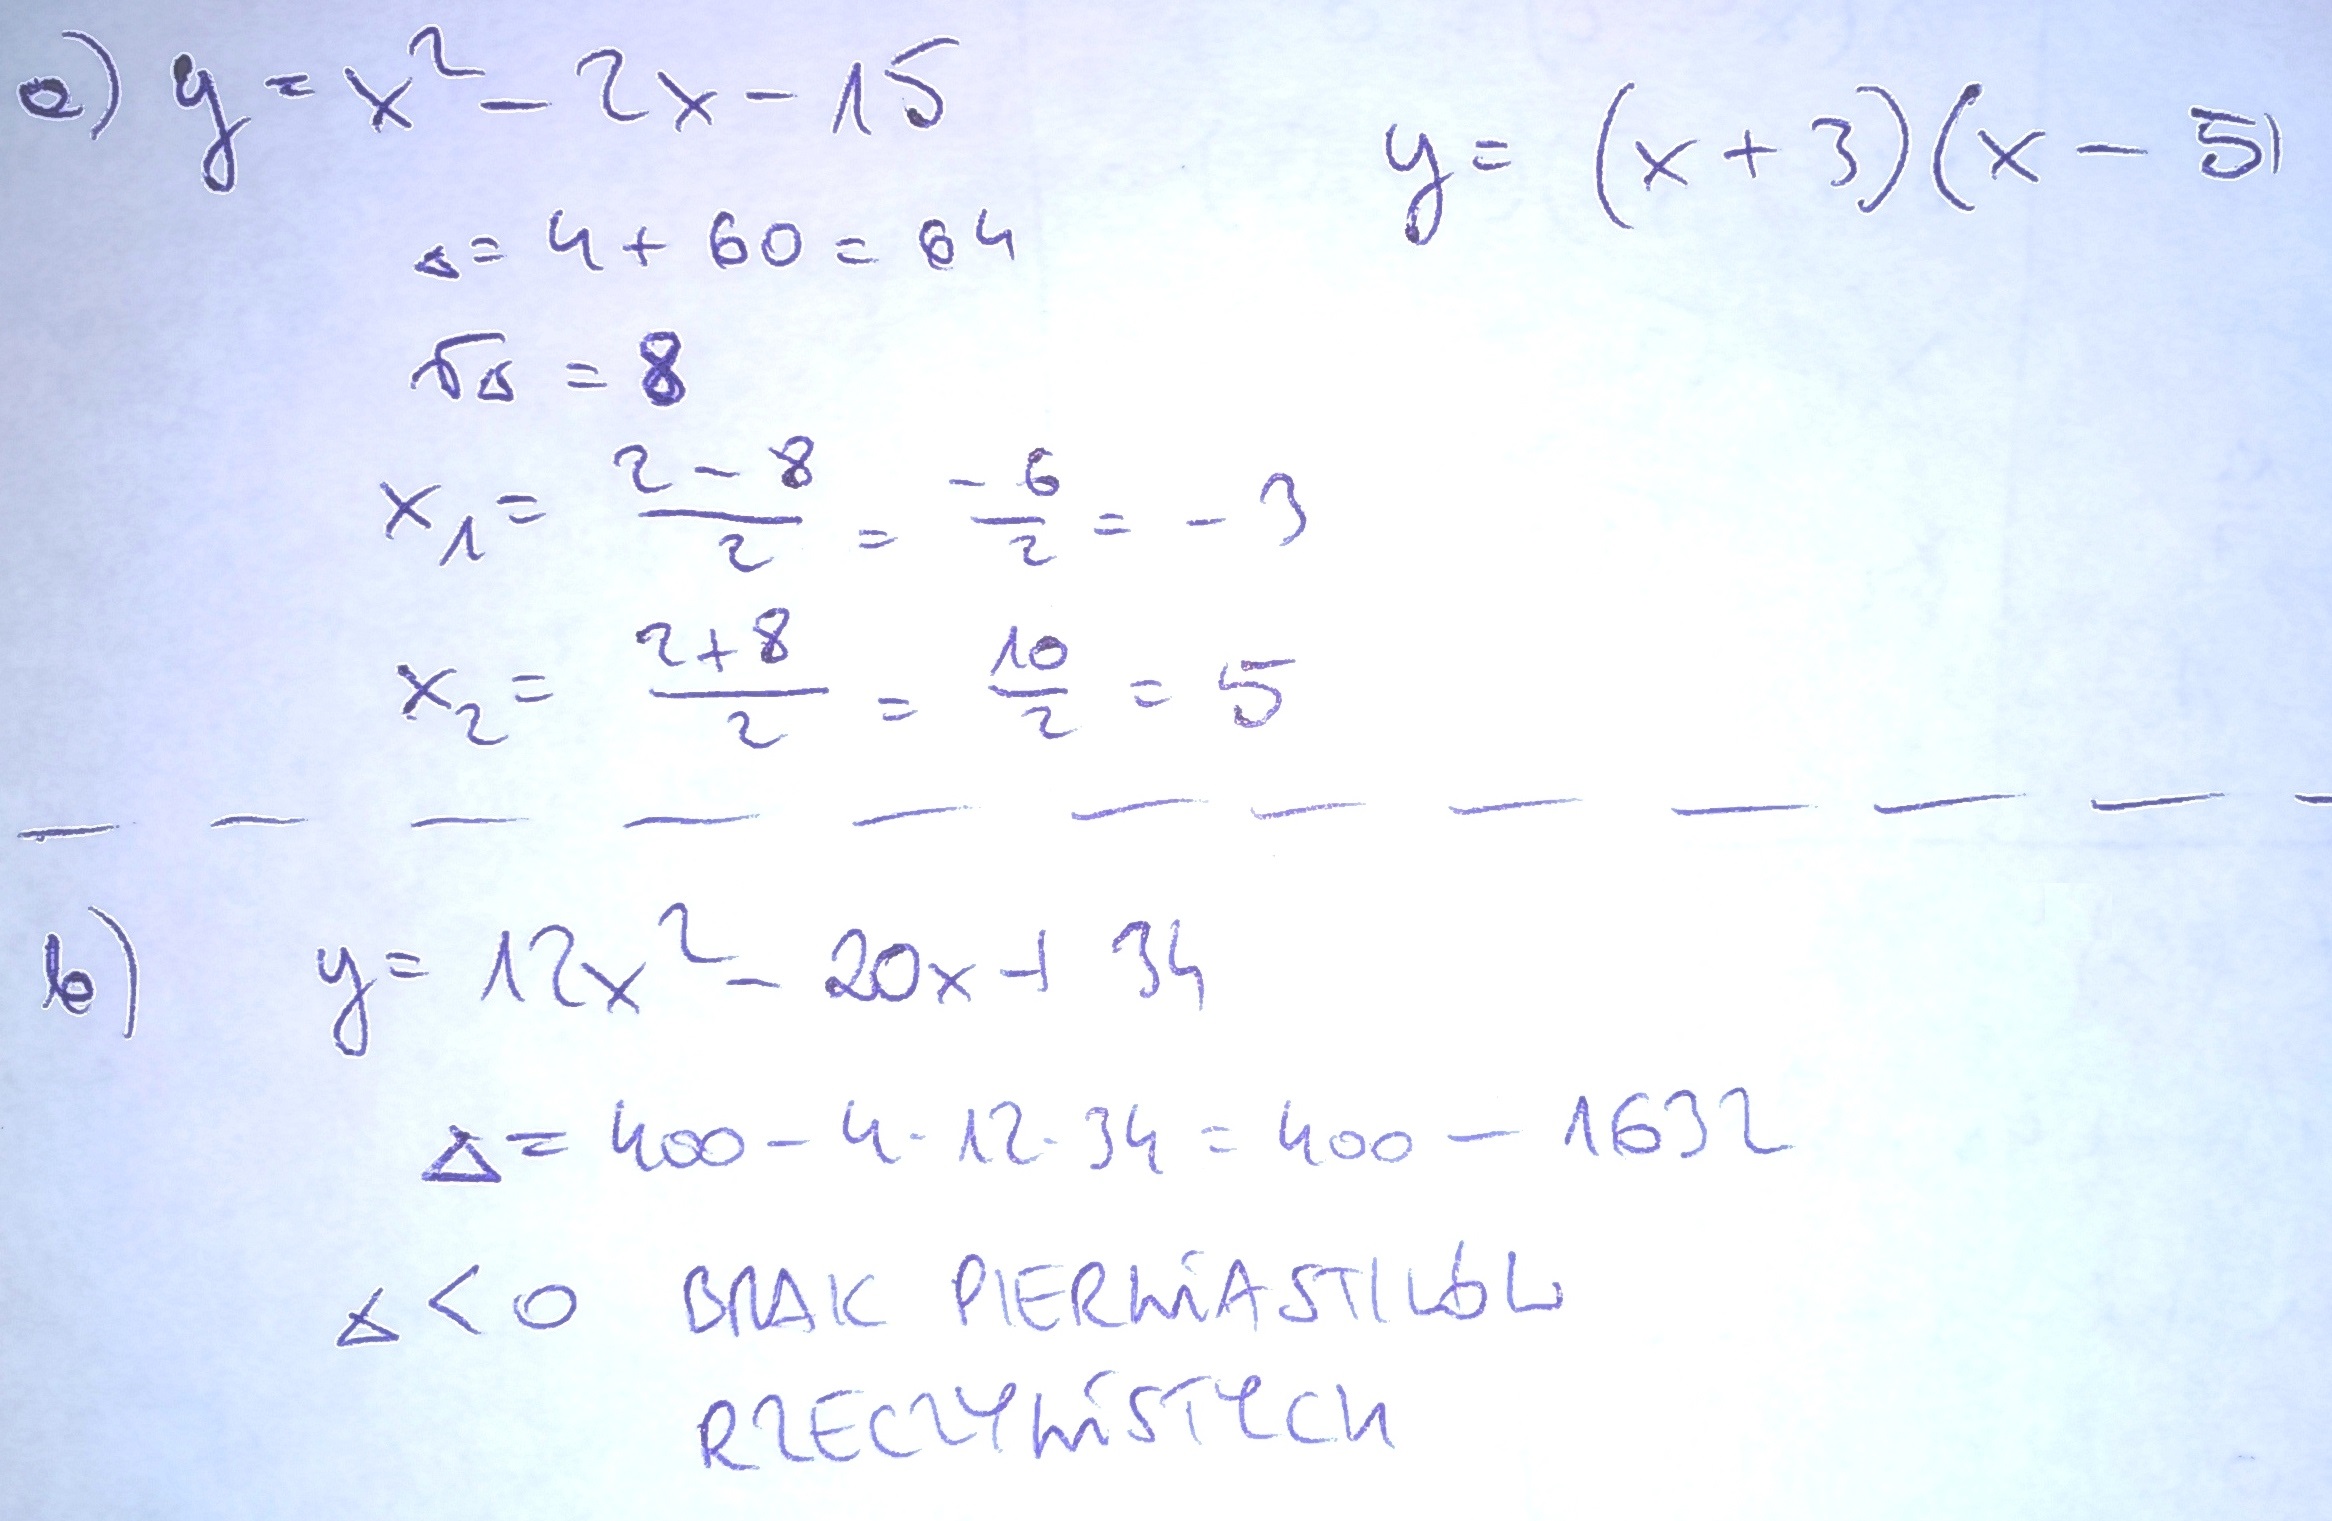 a) y = x² - 2x - 15
y = (x + 3)(x - 5)
Δ = 4 + 60 = 64
√Δ = 8
x₁ = (2 - 8)/2 = -6/2 = -3
x₂ = (2 + 8)/2 = 10/2 = 5
b) y = 12x² - 20x + 34
Δ = 400 - 4 · 12 · 34 = 400 - 1632
Δ < 0 BRAK PIERWIASTKÓW
RZECZYWISTYCH